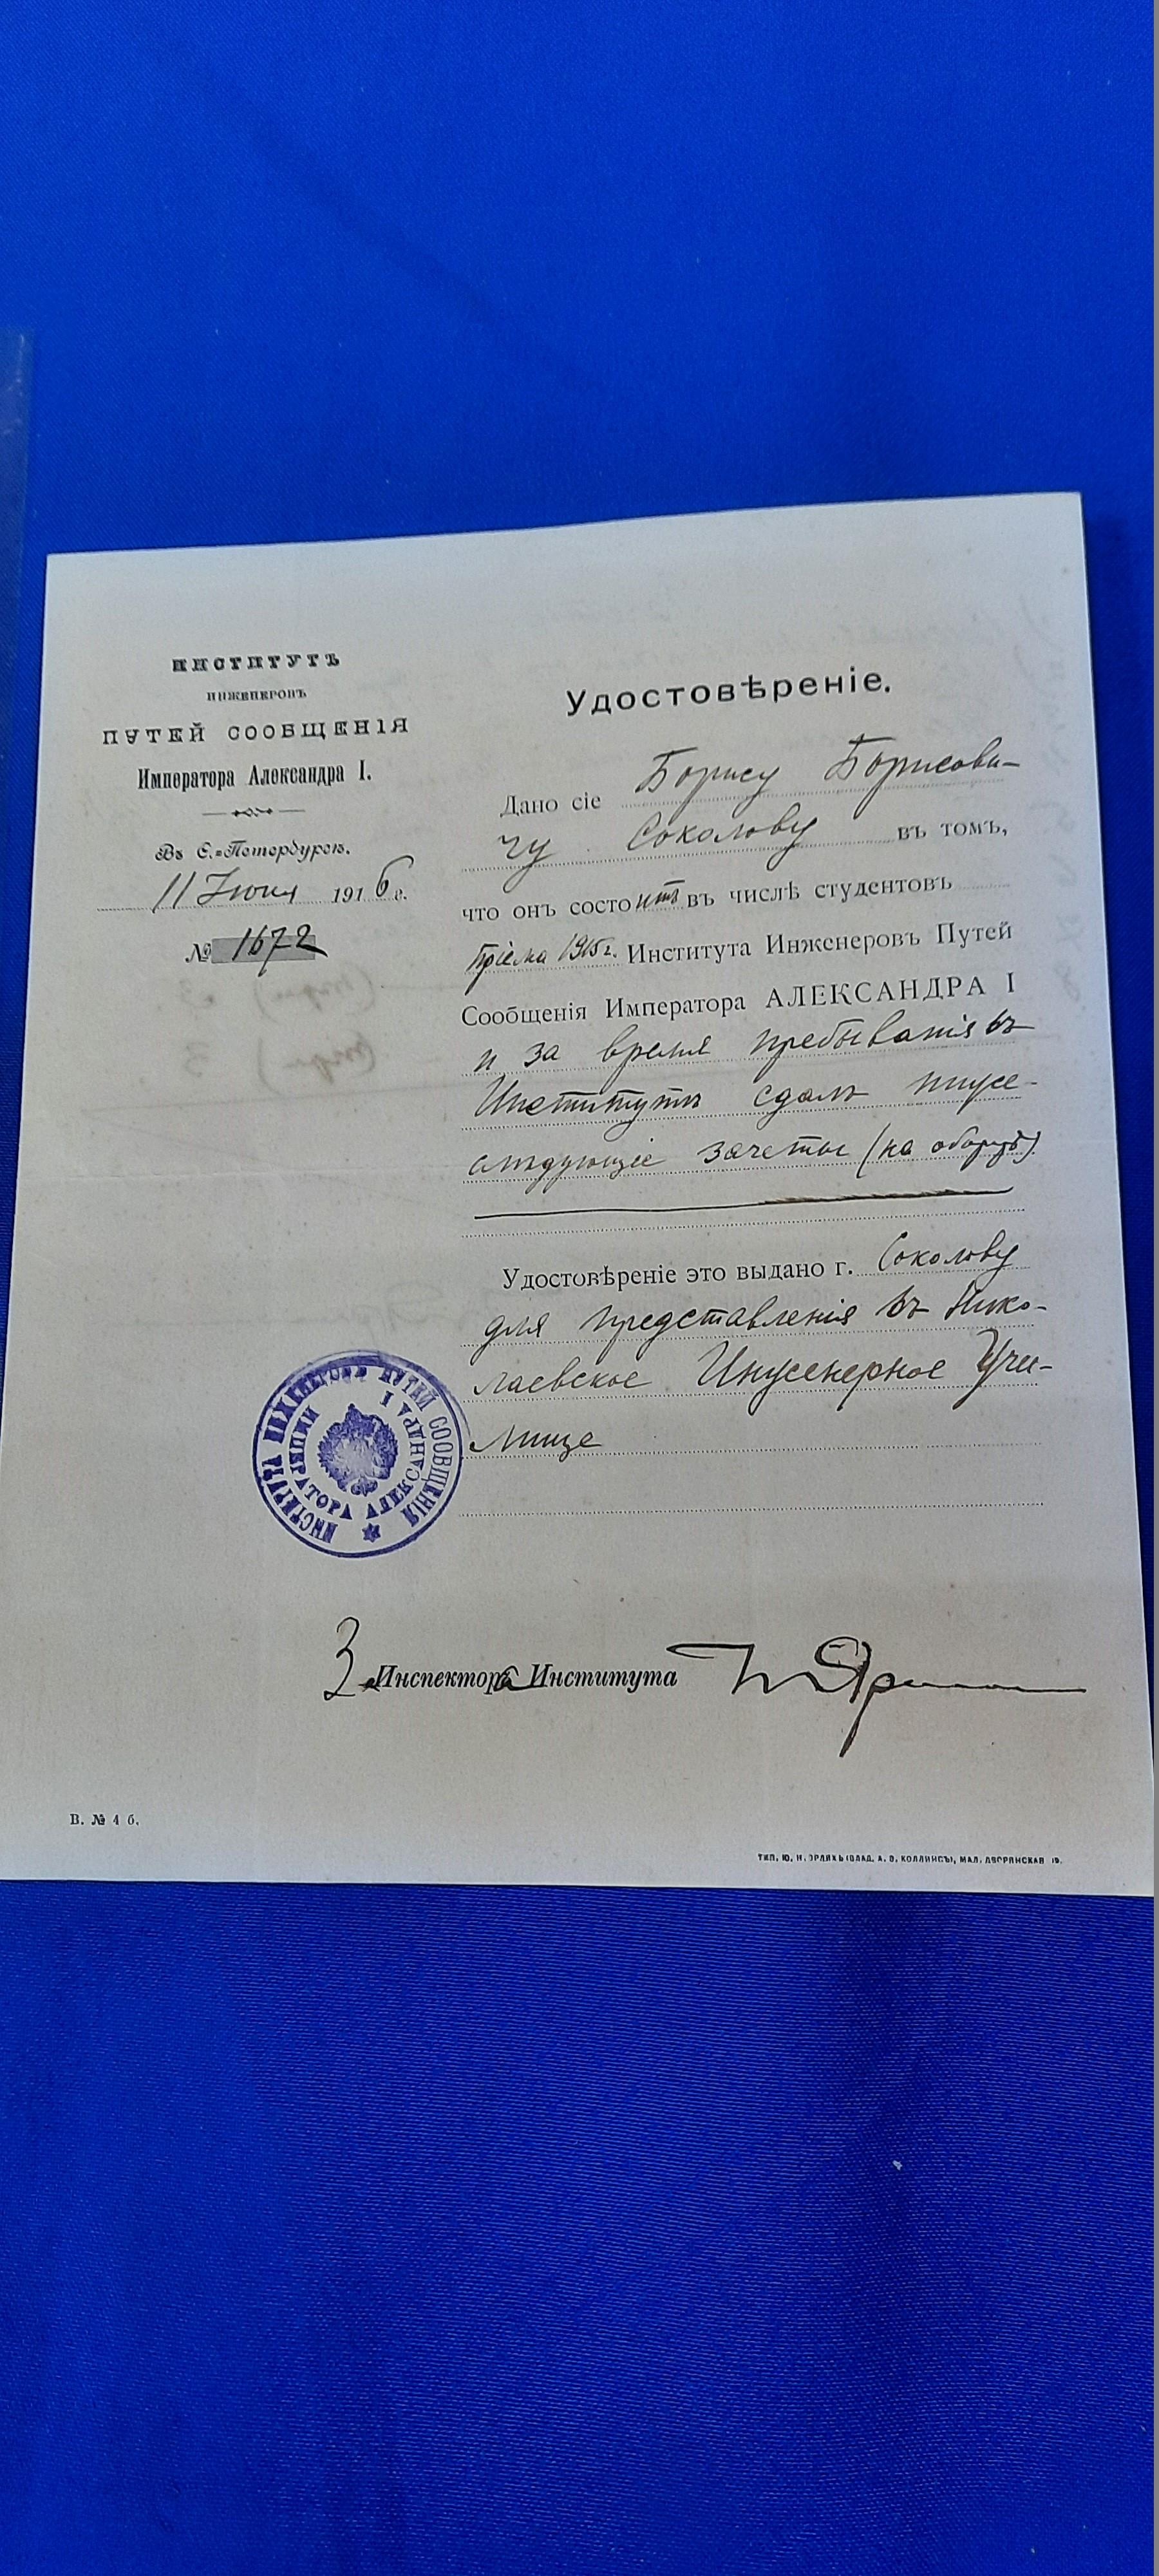 ИНСТИТУТЪ
ИНЖЕНЕРОВЪ
ПУТЕЙ СООБЩЕНІЯ
Императора Александра I.
Въ С.-Петербургѣ.
11 Іюня 1916 г.
№ 1672
Удостовѣреніе.
Дано сіе Борису Борисови-
чу Соколову въ томъ,
что онъ состоитъ въ числѣ студентовъ
пріема 1915 г. Института Инженеровъ Путей
Сообщенія Императора АЛЕКСАНДРА I
и за время пребыванія въ
Институтѣ сдалъ ниже-
слѣдующіе зачеты (на оборотѣ)
Удостовѣреніе это выдано г. Соколову
для представленія въ Нико-
лаевское Инженерное Учи-
лище
ИНСТИТУТЪ ИНЖЕНЕРОВЪ ПУТЕЙ СООБЩЕНІЯ
ИМПЕРАТОРА АЛЕКСАНДРА I
За Инспектора Института
В. № 4 б.
ТИП. Ю. Н. ЭРЛИХЪ (ВЛАД. А. Э. КОЛЛИНСЪ), МАЛ. ДВОРЯНСКАЯ 19.